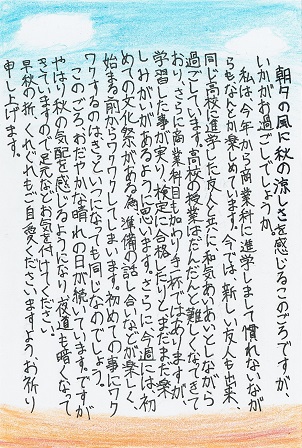 朝夕の風に秋の涼しさを感じるこのごろですが、
いかがお過ごしでしょうか。
私は、今年から商業科に進学しまして慣れないなが
らもなんとか楽しめています。今では、新しい友人も出来、
同じ高校に進学した友人と共に和気あいあいとしながら
過ごしています。高校の授業はだんだんと難しくなってきて
おり、さらに商業科目も加わり手一杯ではありますが、
学習した事が実り、検定に合格したりとまだまだ楽
しみがいがあるように思います。さらに今週には、初
めての文化祭がある為、準備の話し合いなどが楽しく、
始まる前からワクワクしてしまいます。初めての事にワク
ワクするのはきっといつになっても同じなのでしょう。
このごろおだやかな晴れの日が続いています。ですが
やはり秋の気配を感じるようになり夜道も暗くなって
きていますので足元などお気を付けてください。
早秋の折、くれぐれもご自愛くださいますようお祈り
申し上げます。